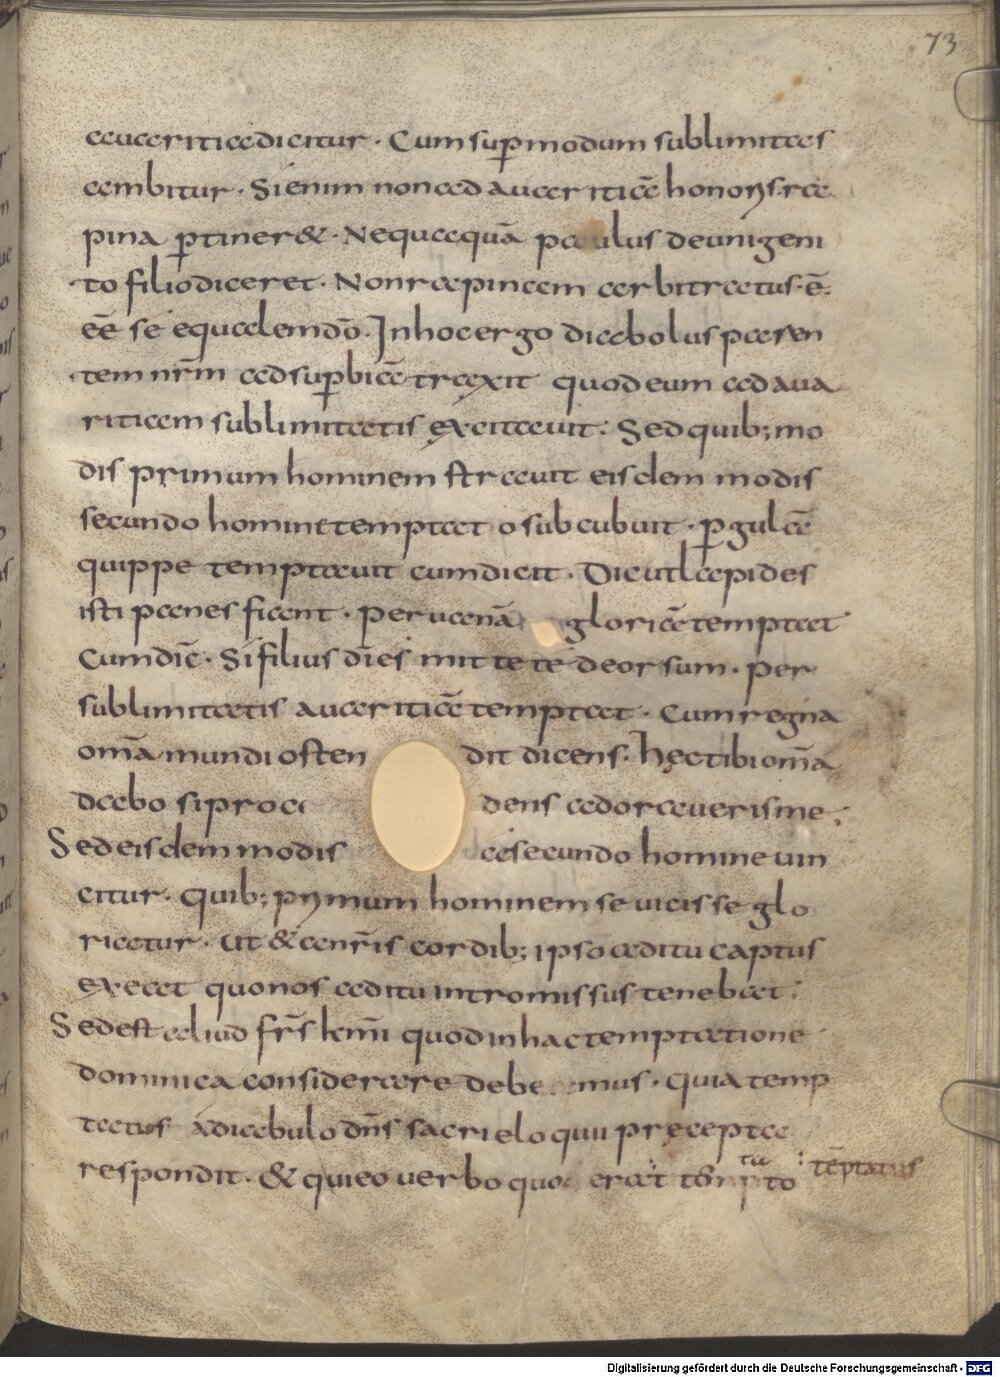 73
auaritia dicitur · Cum sup̄ modum sublimitas
ambitur · Si enim non ad auaritiā honoris ra
pina p̄tiner& · Nequaquā paulus deunigeni
to filio diceret · Non rapinam arbitratus ē
eē se equalem dō · In hoc ergo diabolus paren
tem nr̄m ad sup̄biā traxit quod eum ad aua
ritiam sublimitatis excitauit · Sed quib; mo
dis primum hominem strauit eisdem modis
secundo homine temptato subcubuit · p̄ gulā
quippe temptauit cum dicit · Dic ut lapides
isti panes fiant · Per uanā gloriā temptat
Cum dic̄ · Si filius dī es mitte te deorsum · Per
sublimitatis auaritiā temptat · Cum regna
om̄a mundi osten dit dicens · hęc tibi om̄a
dabo si proci dens adoraueris me ·
Sed eisdem modis a secundo homine uin
citur · quib; primum hominem se uicisse glo
riatur · Ut & a nr̄is cordib; ipso aditu captus
exeat quo nos aditu intromissus tenebat ·
Sed est aliud fr̄s km̄i quod in hac temptatione
dominica considerare debemus · quia temp
tatus a diabulo dn̄s sacri eloquii pręcepta
respondit · & qui eo uerbo quod erat
tēptatus
Digitalisierung gefördert durch die Deutsche Forschungsgemeinschaft - DFG